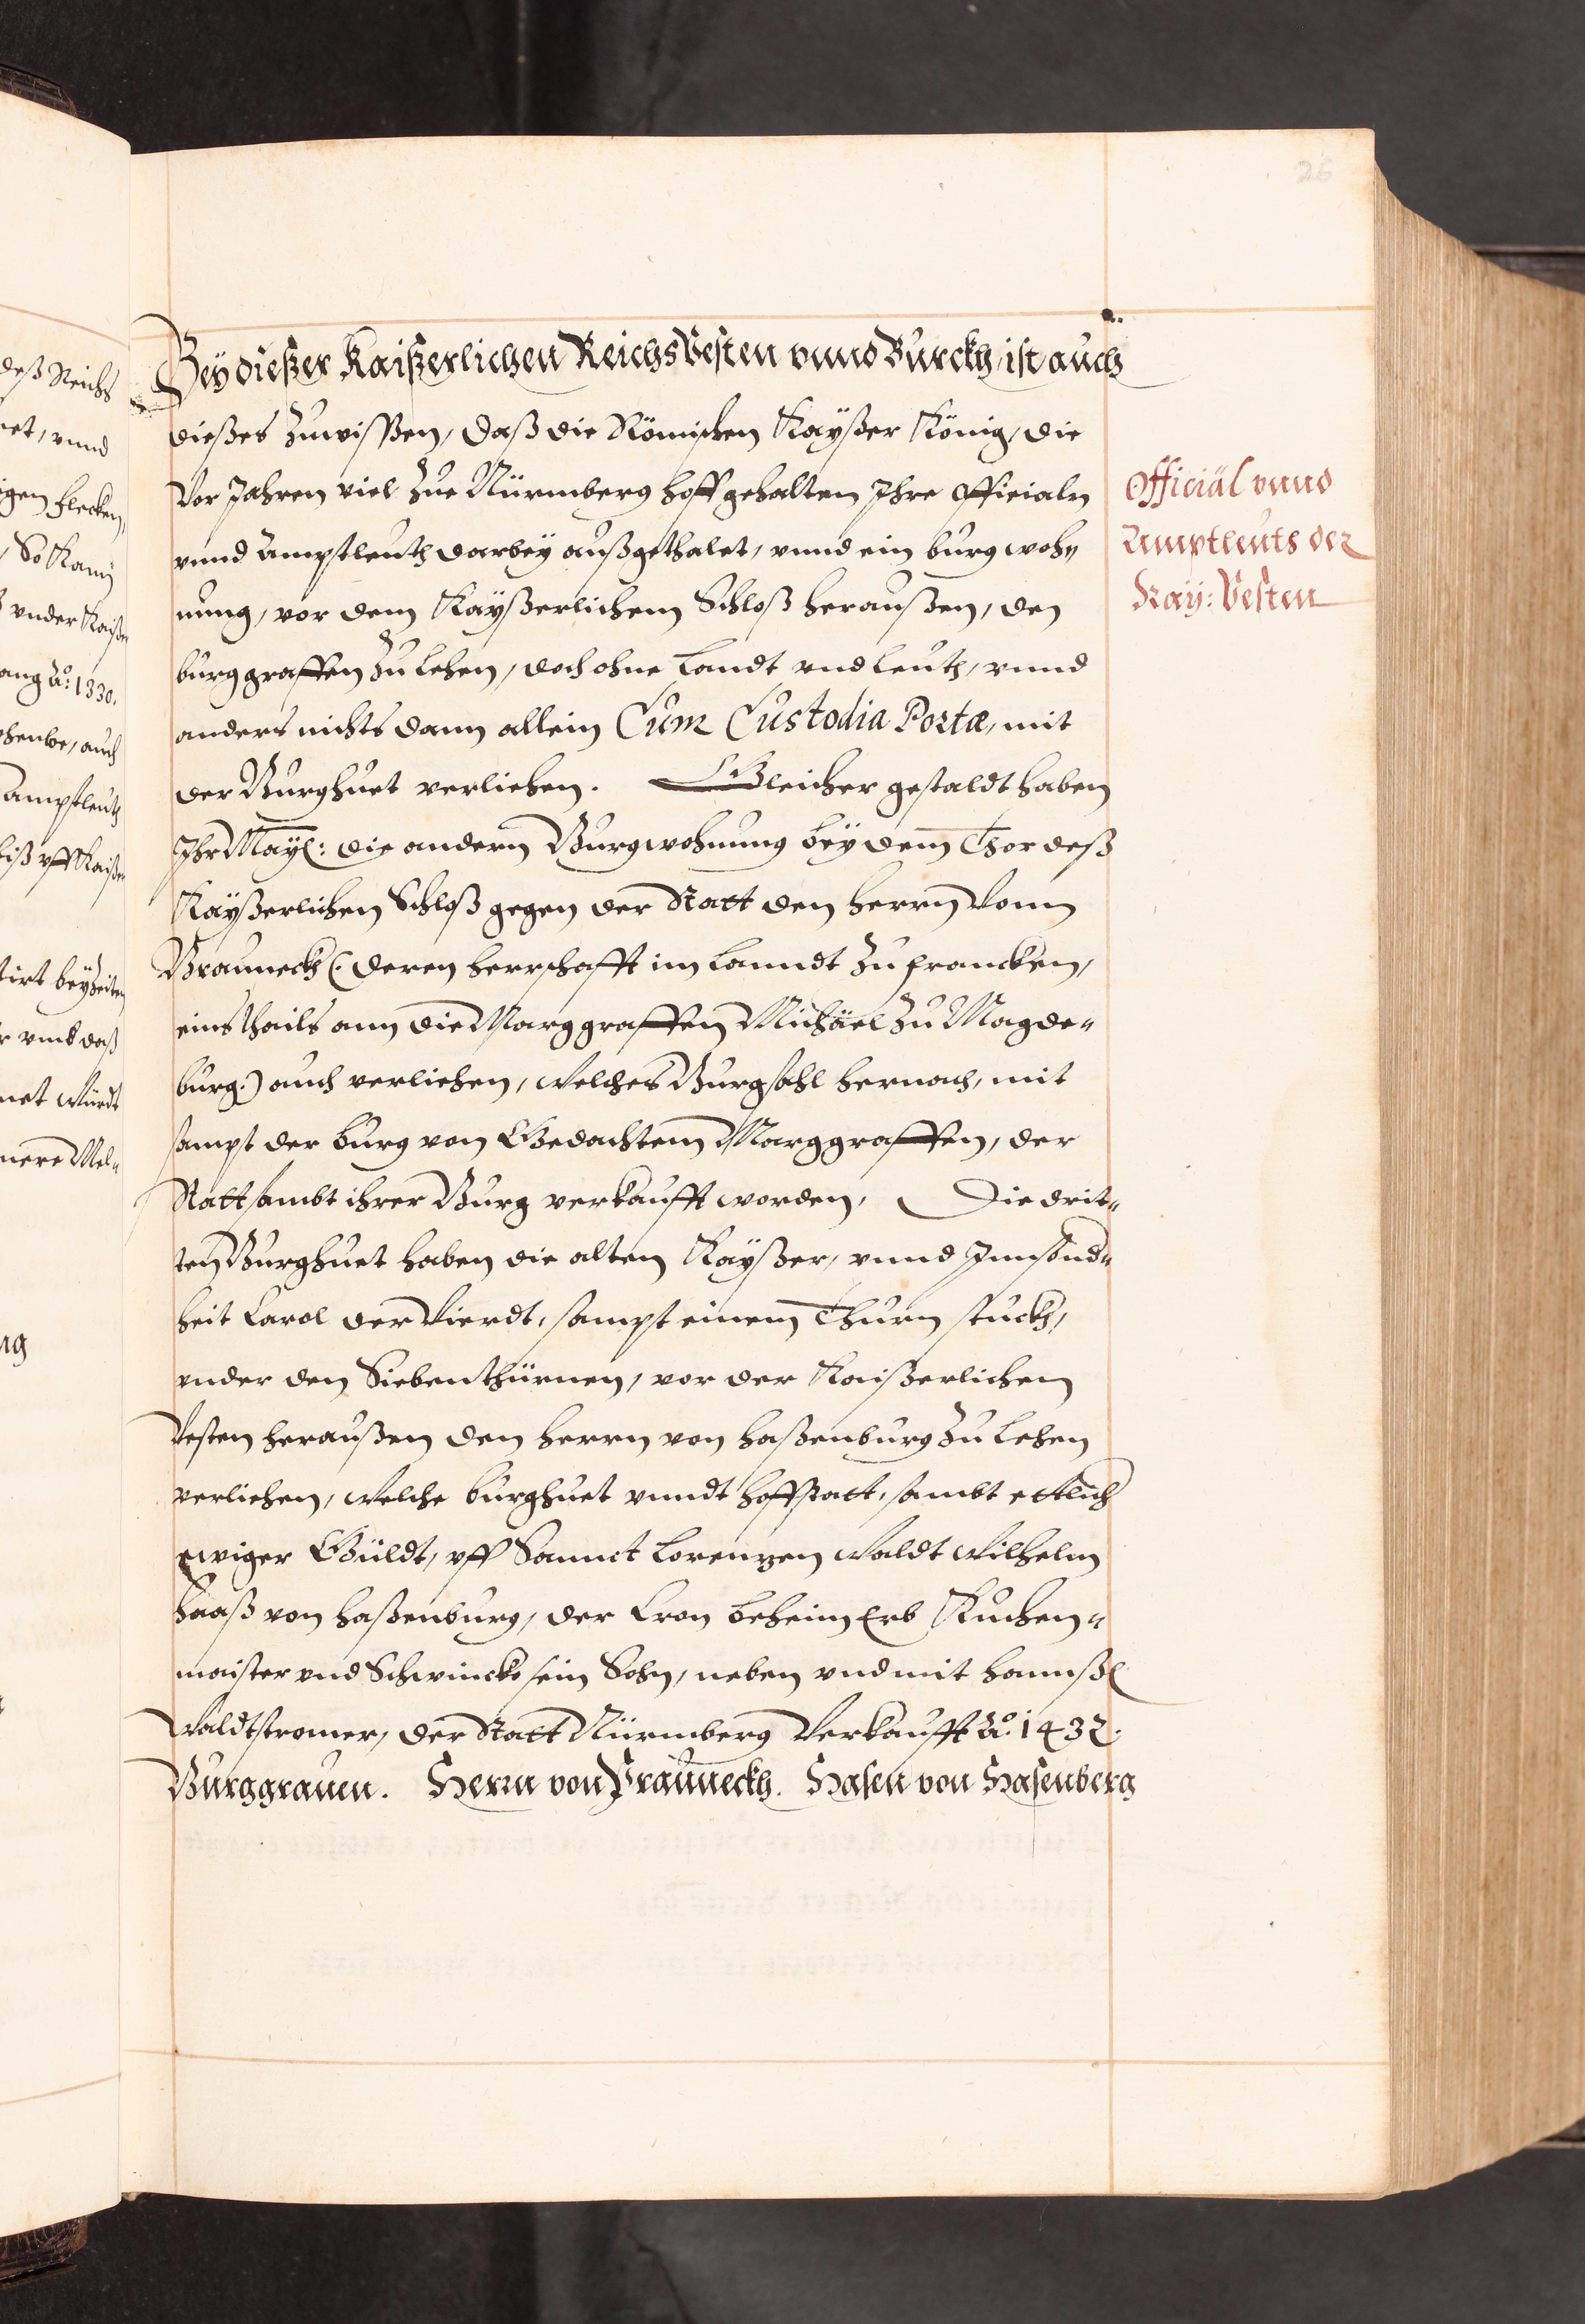 26
Bey dießer Kaißerlichen Reichs Vesten vnnd Burckh, ist auch
dießes zuwissen, daß die Römischen Kayßer König, die
Vor Jahren viel zue Nürmberg hoff gehalten Ihre Officialn
vnnd Amptleuth darbey außgethalet, vnnd ein burg woh„
nung, vor dem Kayßerlichem Schloß heraußen, den
burggraffen zu Lehen, doch ohne Landt vnd leuth, vnnd
anders nichts dann allein Cum Custodia Portæ, mit
der Burghuet verliehen. Gleicher gestaldt haben
Ihr May: die andern Burgwohnung bey dem Thor deß
Kayßerlichen Schloß gegen der Statt den herrn Vonn
Brauneckh (: deren herrschafft im Landt zu francken,
eins thails ann die Marggraffen Michäel zu Magde„
burg:) auch verliehen, welches Burgsohl hernach, mit
sampt der burg von Gedachtem Marggraffen, der
Statt sambt ihrer Burg verkaufft worden, Die drit„
ten Burghuet haben die alten Kayßer, vnnd Innsond„
heit Carol der Vierdt, sampt einem Thurn stuckh,
vnder den Sieben thürnen, vor der Kaißerlichen
Vesten heraußen den herrn von haßenburg zu Lehen
verliehen, welche burghuet vnndt hoffstatt, sambt ettlich
ewiger Güldt, vff Sannct Lorenzen Waldt Wilhelm
haaß von haßenburg, der Cron beheim Erb Kuchen„
maister vnd Schwincko sein Sohn, neben vnd mit hannß
Waldtstromer, der Statt Nürmberg Verkaufft Aō. 1432.
Burggrauen. Herrn von Praunneckh. Hasen von Hasenberg
Officiäl vnnd
Amptleuts der
Kay: Vesten
deß Reichs
et, vnnd
igen flecken,
So Kann
vnder Kaiß
ang Aō. 1330.
auch
amptleuth
biß vff Kaiß
tirt bey Zeiten
vmb daß
net würdt
nere Mel„